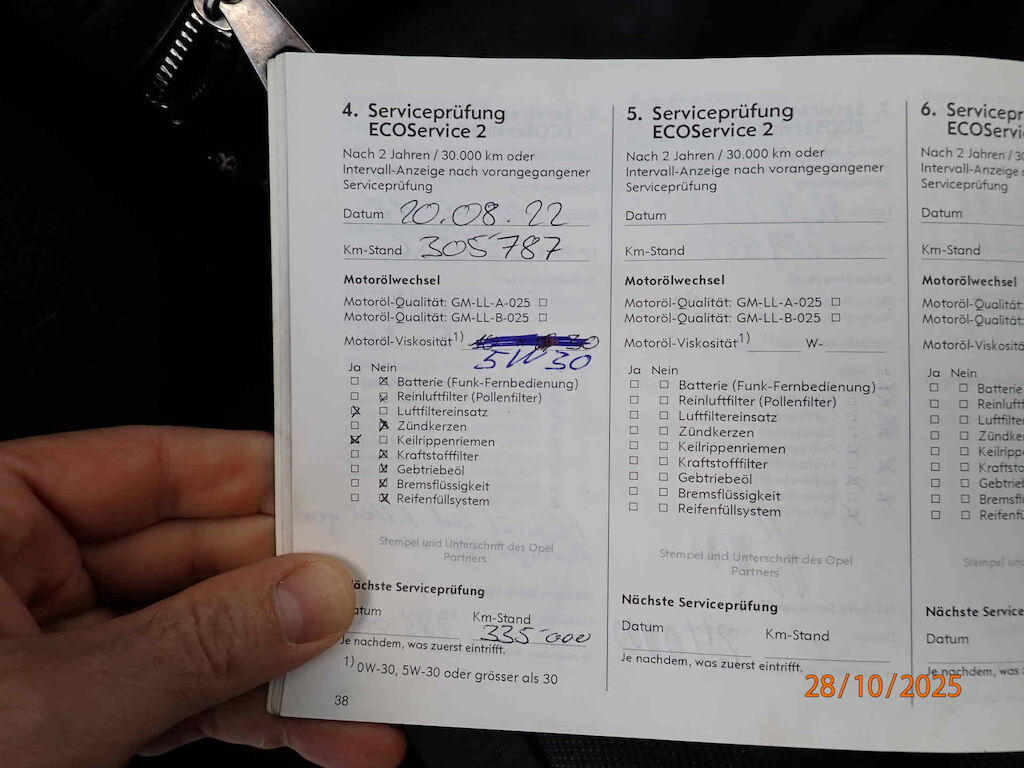 4. Serviceprüfung
ECOService 2
Nach 2 Jahren / 30.000 km oder
Intervall-Anzeige nach vorangegangener
Serviceprüfung
Datum 20.08.22
Km-Stand 305'787
Motorölwechsel
Motoröl-Qualität: GM-LL-A-025 ☐
Motoröl-Qualität: GM-LL-B-025 ☐
Motoröl-Viskosität 1)
5W30
Ja Nein
☐ ☒ Batterie (Funk-Fernbedienung)
☐ ☒ Reinluftfilter (Pollenfilter)
☒ ☐ Luftfiltereinsatz
☐ ☒ Zündkerzen
☒ ☐ Keilrippenriemen
☐ ☒ Kraftstofffilter
☐ ☒ Gebtriebeöl
☐ ☒ Bremsflüssigkeit
☐ ☒ Reifenfüllsystem
Stempel und Unterschrift des Opel
Partners
ächste Serviceprüfung
atum Km-Stand
335'000
Je nachdem, was zuerst eintrifft.
1) 0W-30, 5W-30 oder grösser als 30
38
5. Serviceprüfung
ECOService 2
Nach 2 Jahren / 30.000 km oder
Intervall-Anzeige nach vorangegangener
Serviceprüfung
Datum
Km-Stand
Motorölwechsel
Motoröl-Qualität: GM-LL-A-025 ☐
Motoröl-Qualität: GM-LL-B-025 ☐
Motoröl-Viskosität 1) W-
Ja Nein
☐ ☐ Batterie (Funk-Fernbedienung)
☐ ☐ Reinluftfilter (Pollenfilter)
☐ ☐ Luftfiltereinsatz
☐ ☐ Zündkerzen
☐ ☐ Keilrippenriemen
☐ ☐ Kraftstofffilter
☐ ☐ Gebtriebeöl
☐ ☐ Bremsflüssigkeit
☐ ☐ Reifenfüllsystem
Stempel und Unterschrift des Opel
Partners
Nächste Serviceprüfung
Datum Km-Stand
Je nachdem, was zuerst eintrifft.
6. Servicepr
ECOServi
Nach 2 Jahren / 30
Intervall-Anzeige n
Serviceprüfung
Datum
Km-Stand
Motorölwechsel
Motoröl-Qualität:
Motoröl-Qualität:
Motoröl-Viskositä
Ja Nein
☐ ☐ Batterie
☐ ☐ Reinluft
☐ ☐ Luftfilte
☐ ☐ Zündke
☐ ☐ Keilripp
☐ ☐ Kraftsto
☐ ☐ Gebtrie
☐ ☐ Bremsfl
☐ ☐ Reifenfü
Stempel und
Nächste Service
Datum
Je nachdem, was z
28/10/2025